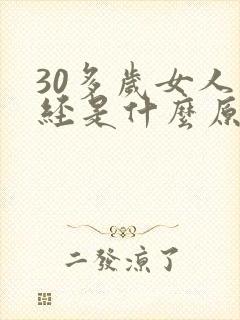 30多歲女人
經是什麼原
二發涼了